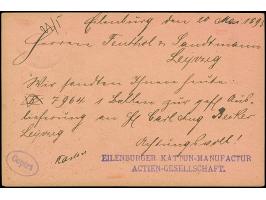 Eilenburg den 20 Mai 189
Herren Teuthol & Sandtmann
Leipzig
Wir sandten Ihnen heute:
7964 1 Ballen zur gefl Aus-
lieferung an H Carl Aug Becker
Leipzig
Achtungsvoll!
EILENBURGER KATTUN-MANUFACTUR
ACTIEN-GESELLSCHAFT.
Copirt